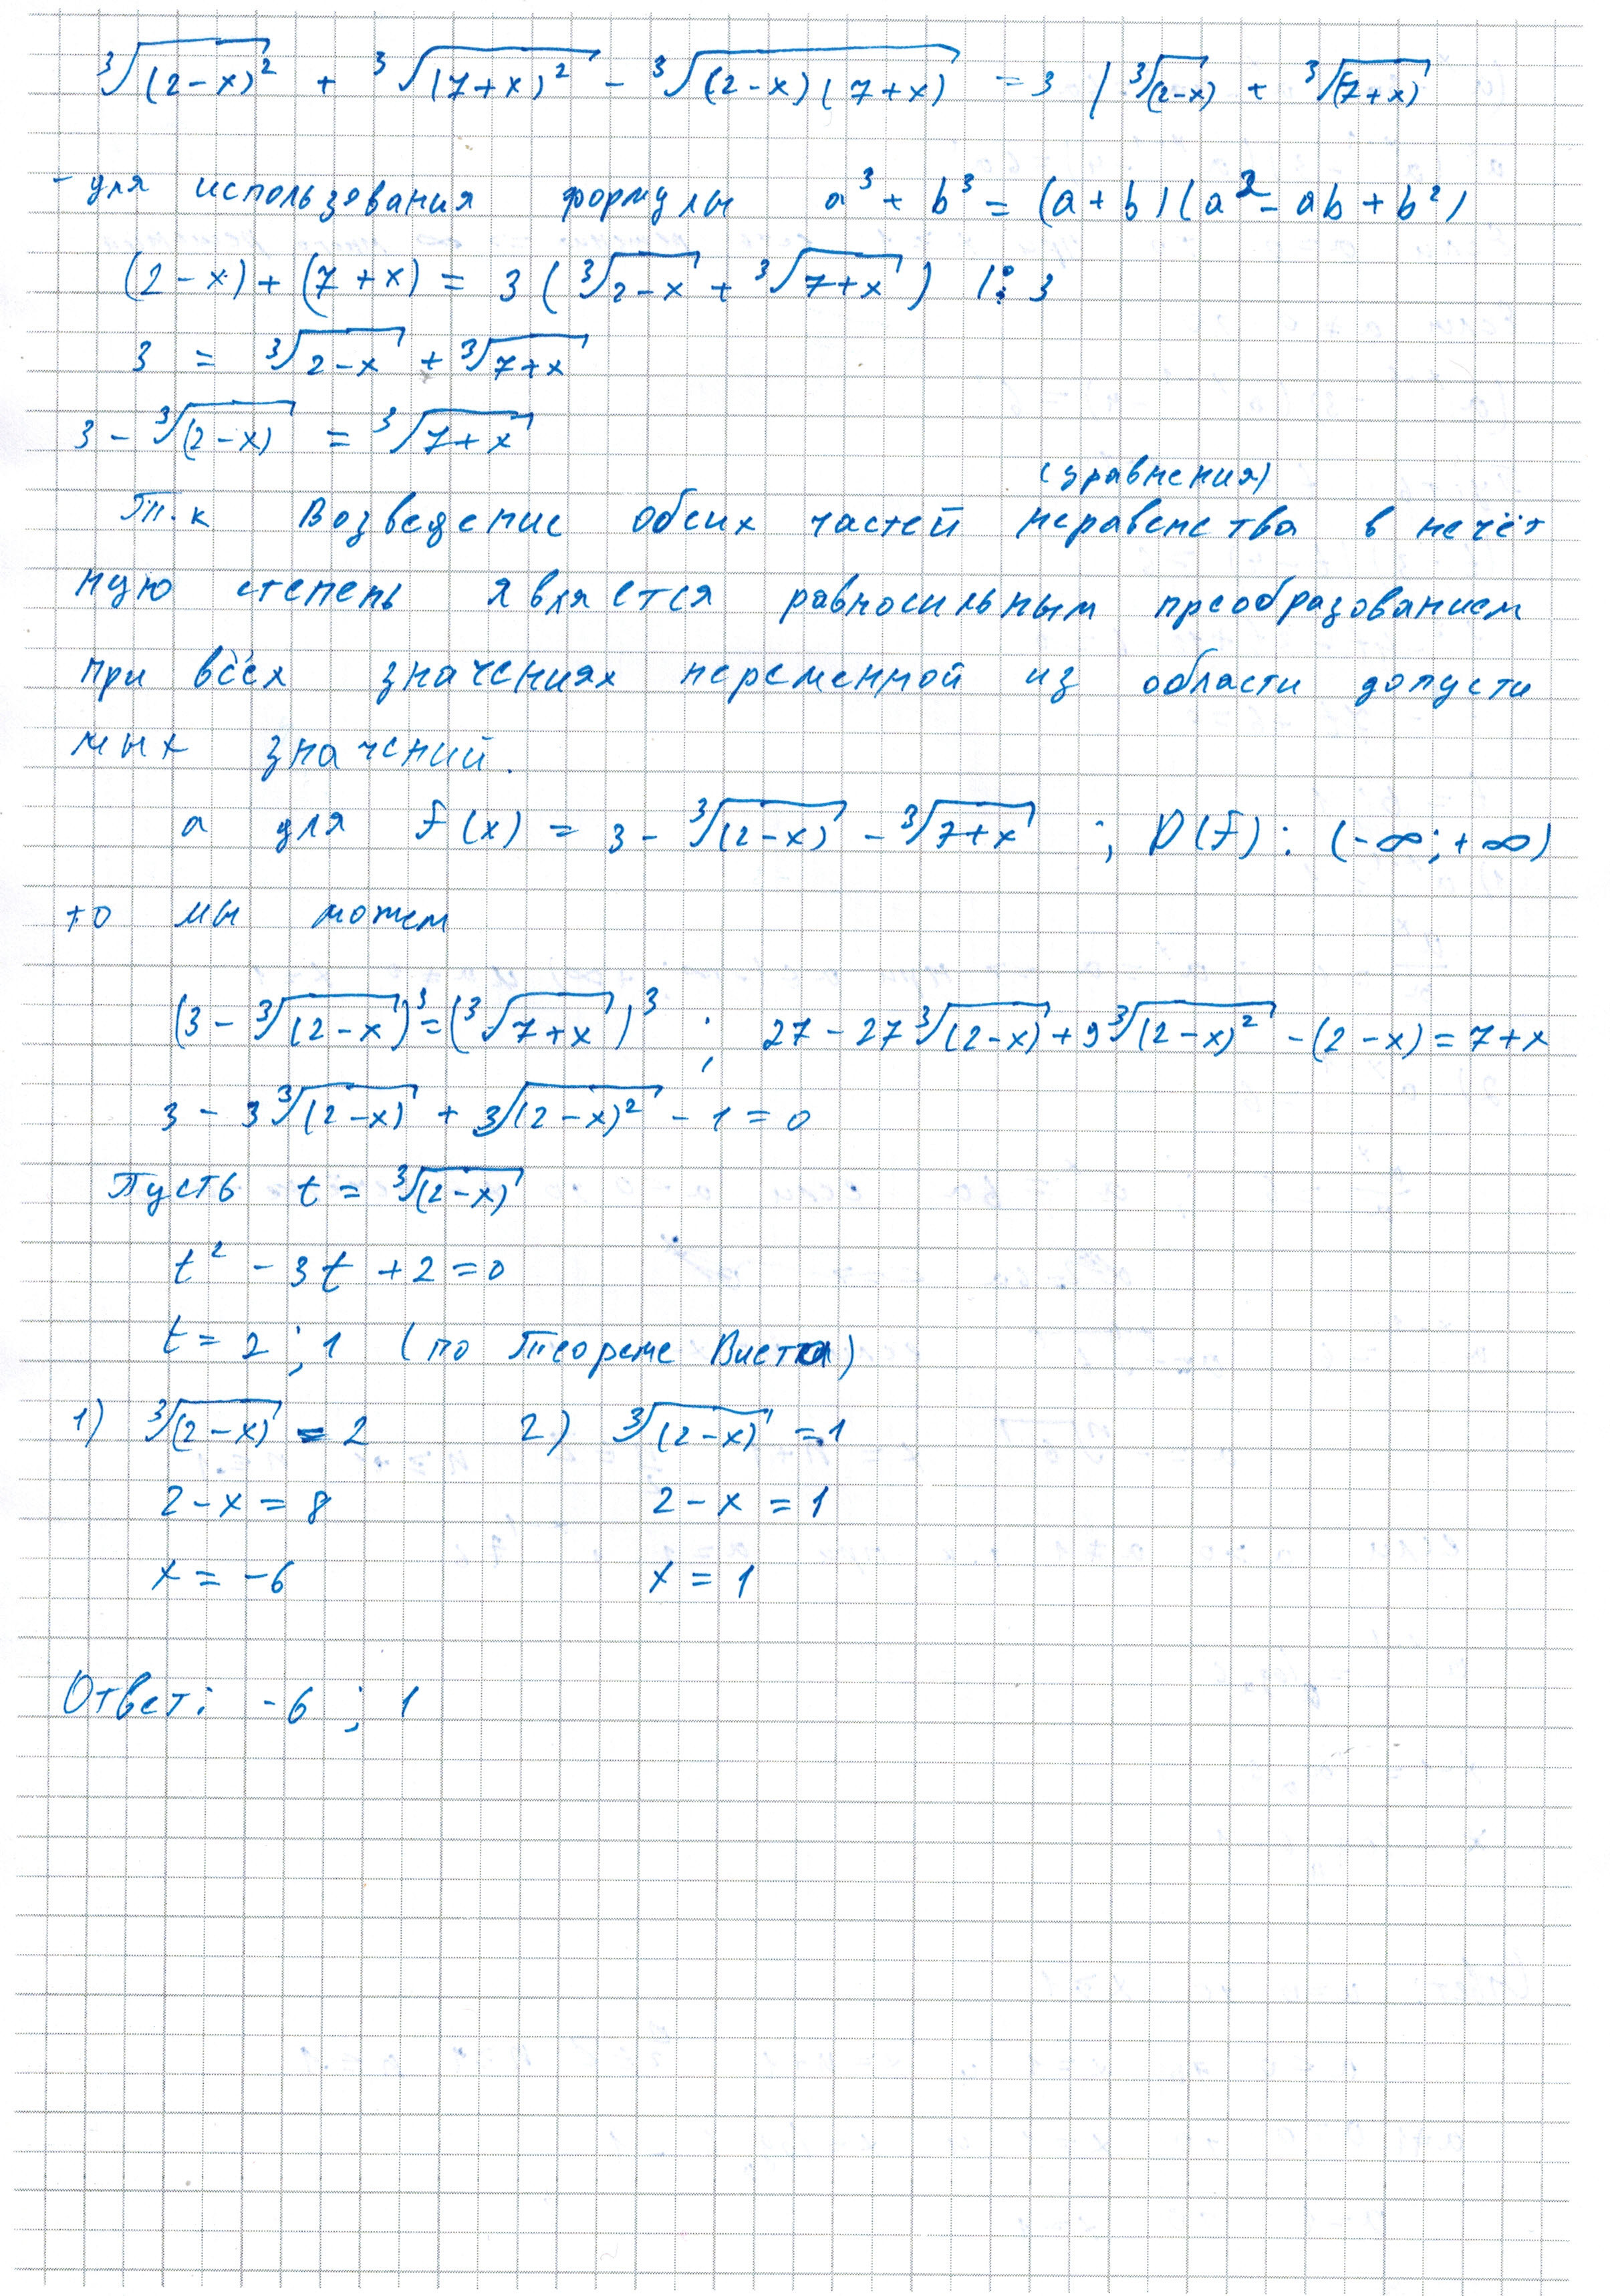 ∛(2-x)² + ∛(7+x)² - ∛(2-x)(7+x) = 3 | ∛(2-x) + ∛(7+x)
- для использования формулы a³ + b³ = (a+b)(a² - ab + b²)
(2-x) + (7+x) = 3 (∛2-x + ∛7+x) |: 3
3 = ∛2-x + ∛7+x
3 - ∛(2-x) = ∛7+x
(уравнения)
Т.к Возведение обеих частей неравенства в нечёт
ную степень является равносильным преобразованием
при всех значениях переменной из области допусти
мых значений.
а для f(x) = 3 - ∛(2-x) - ∛7+x ; D(f): (-∞;+∞)
то мы можем
(3 - ∛(2-x)³ = (∛7+x)³ ; 27 - 27∛(2-x) + 9∛(2-x)² - (2-x) = 7+x
3 - 3∛(2-x) + ∛(2-x)² - 1 = 0
Пусть t = ∛(2-x)
t² - 3t + 2 = 0
t = 2 ; 1 (по Теореме Виета)
1) ∛(2-x) = 2 2) ∛(2-x) = 1
2-x = 8 2-x = 1
x = -6 x = 1
Ответ: -6 ; 1